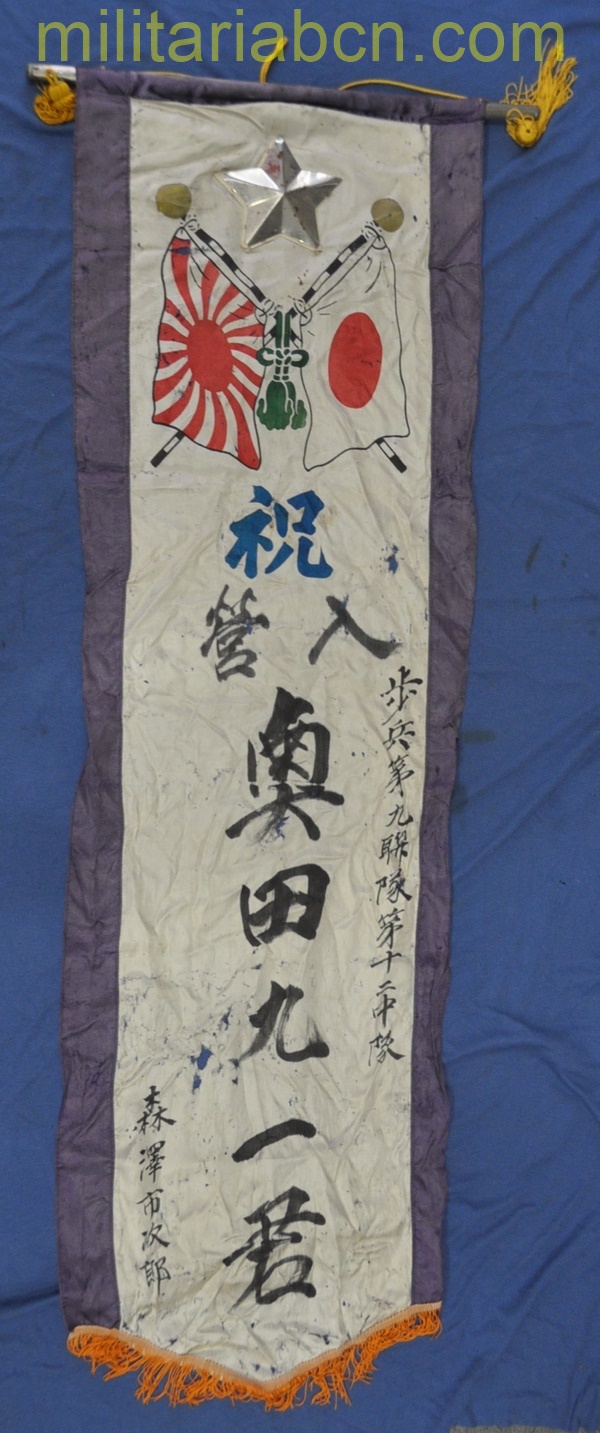 militariabcn.com
祝
入營
步兵第九聯隊第十二中隊
奧田九一君
森澤市次郎